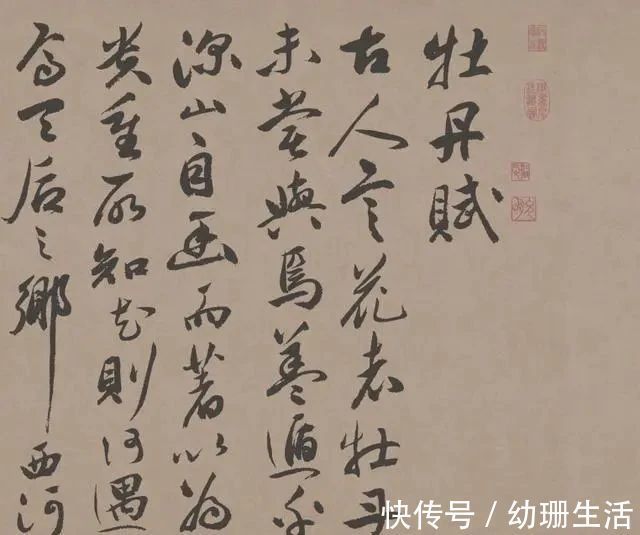 牡丹賦
古人言花者牡丹
未嘗與焉蓋遁乎
深山自幽而著以為
貴重所知花則何遇
焉天后之鄉西河
快传号 / 幼珊生活